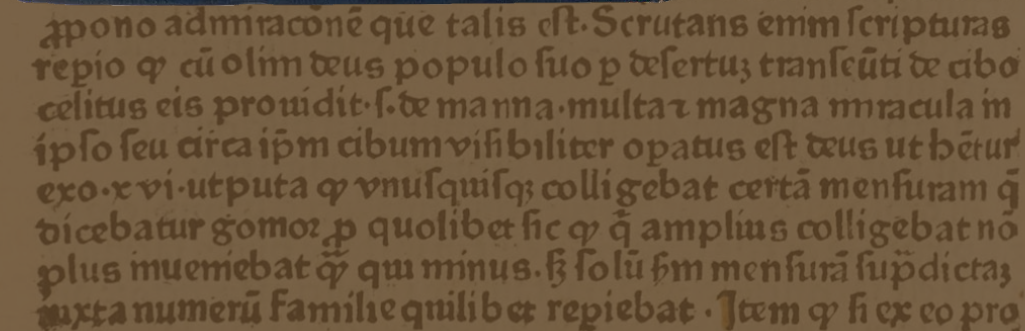 ꝓpono admiracōnē que talis eſt. Scrutans enim ſcripturas
repio ꝙ cū olim deus populo ſuo ꝑ deſertuꝫ tranſeūti de cibo
celitus eis prouidit·ſ·de manna·multa ⁊ magna miracula in
ipſo ſeu circa ip̄m cibum viſibiliter opatus eſt deus ut hētur
exo·xvi·utputa ꝙ vnuſquiſqꝫ colligebat certā menſuram q̄
dicebatur gomoꝛ ꝓ quolibet ſic ꝙ q̄ amplius colligebat nō
plus inueniebat qᷓꝫ qui minus. ſꝫ ſolū ſm menſurā ſup̄dictaꝫ
iuxta numerū familie quilibet repiebat · Item ꝙ ſi ex eo pro